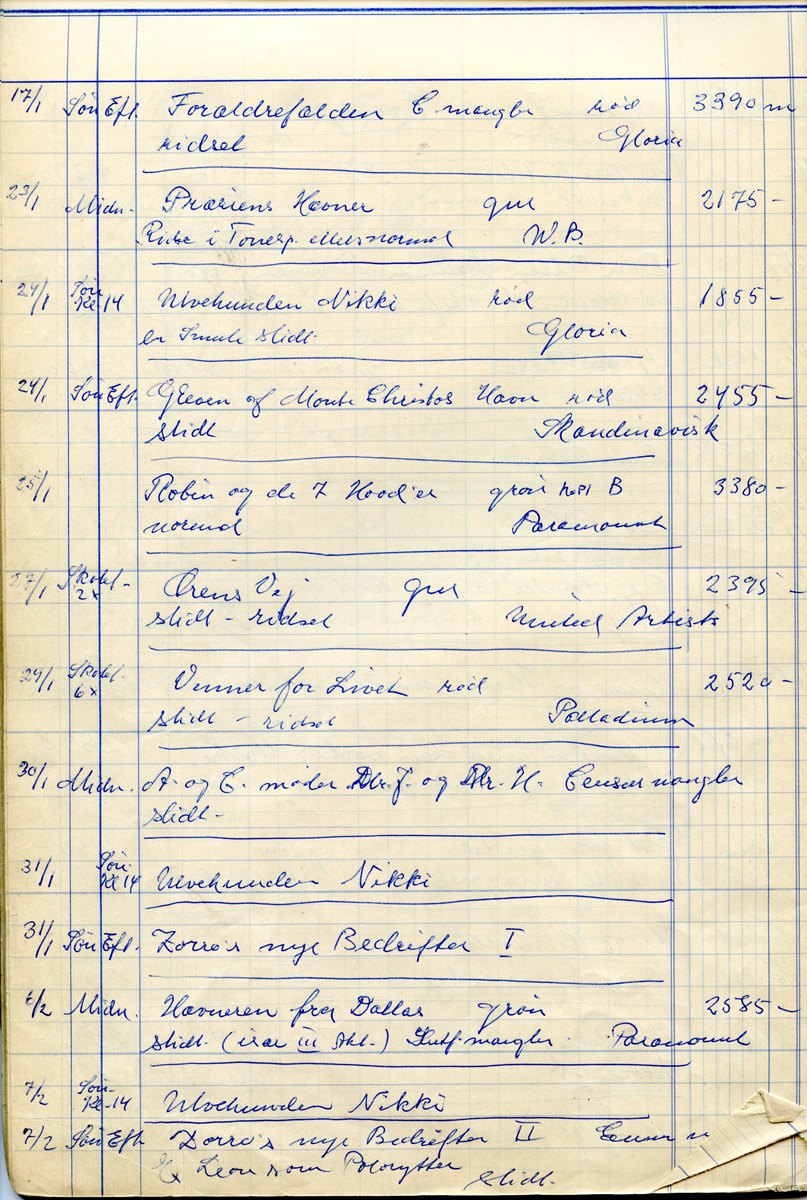 17/1 Søn Eft. Forældrefælden C. mangler rød 3390 m
ridset Gloria
23/1 Midn. Præriens Hævner gul 2175 -
Ridse i Tonesp. ellers normal W.B.
24/1 Søn Kl. 14 Ulvehunden Nikki rød 1855 -
en Smule slidt. Gloria
24/1 Søn Eft. Greven af Monte Christos Hævn rød 2455 -
slidt Skandinavisk
25/1 Robin og de 7 Hood'er grøn B 3380 -
normal Paramount
27/1 Skolef. 2x Ørens Vej gul 2395 -
slidt - ridset United Artists
29/1 Skolef. 6x Venner for Livet rød 2520 -
slidt - ridset Palladium
30/1 Midn. A. og C. møder Dr. J. og Mr. H. Censur mangler
slidt -
31/1 Søn. Kl 14 Ulvehunden Nikki
31/1 Søn Eft. Zorro's nye Bedrifter I
6/2 Midn. Hævneren fra Dallas grøn 2585 -
slidt. (især III Akt.) Slutf. mangler. Paramount
7/2 Søn. Kl. 14 Ulvehunden Nikki
7/2 Søn Eft. Zorro's nye Bedrifter II Censur m
Leon som Polorytter slidt.